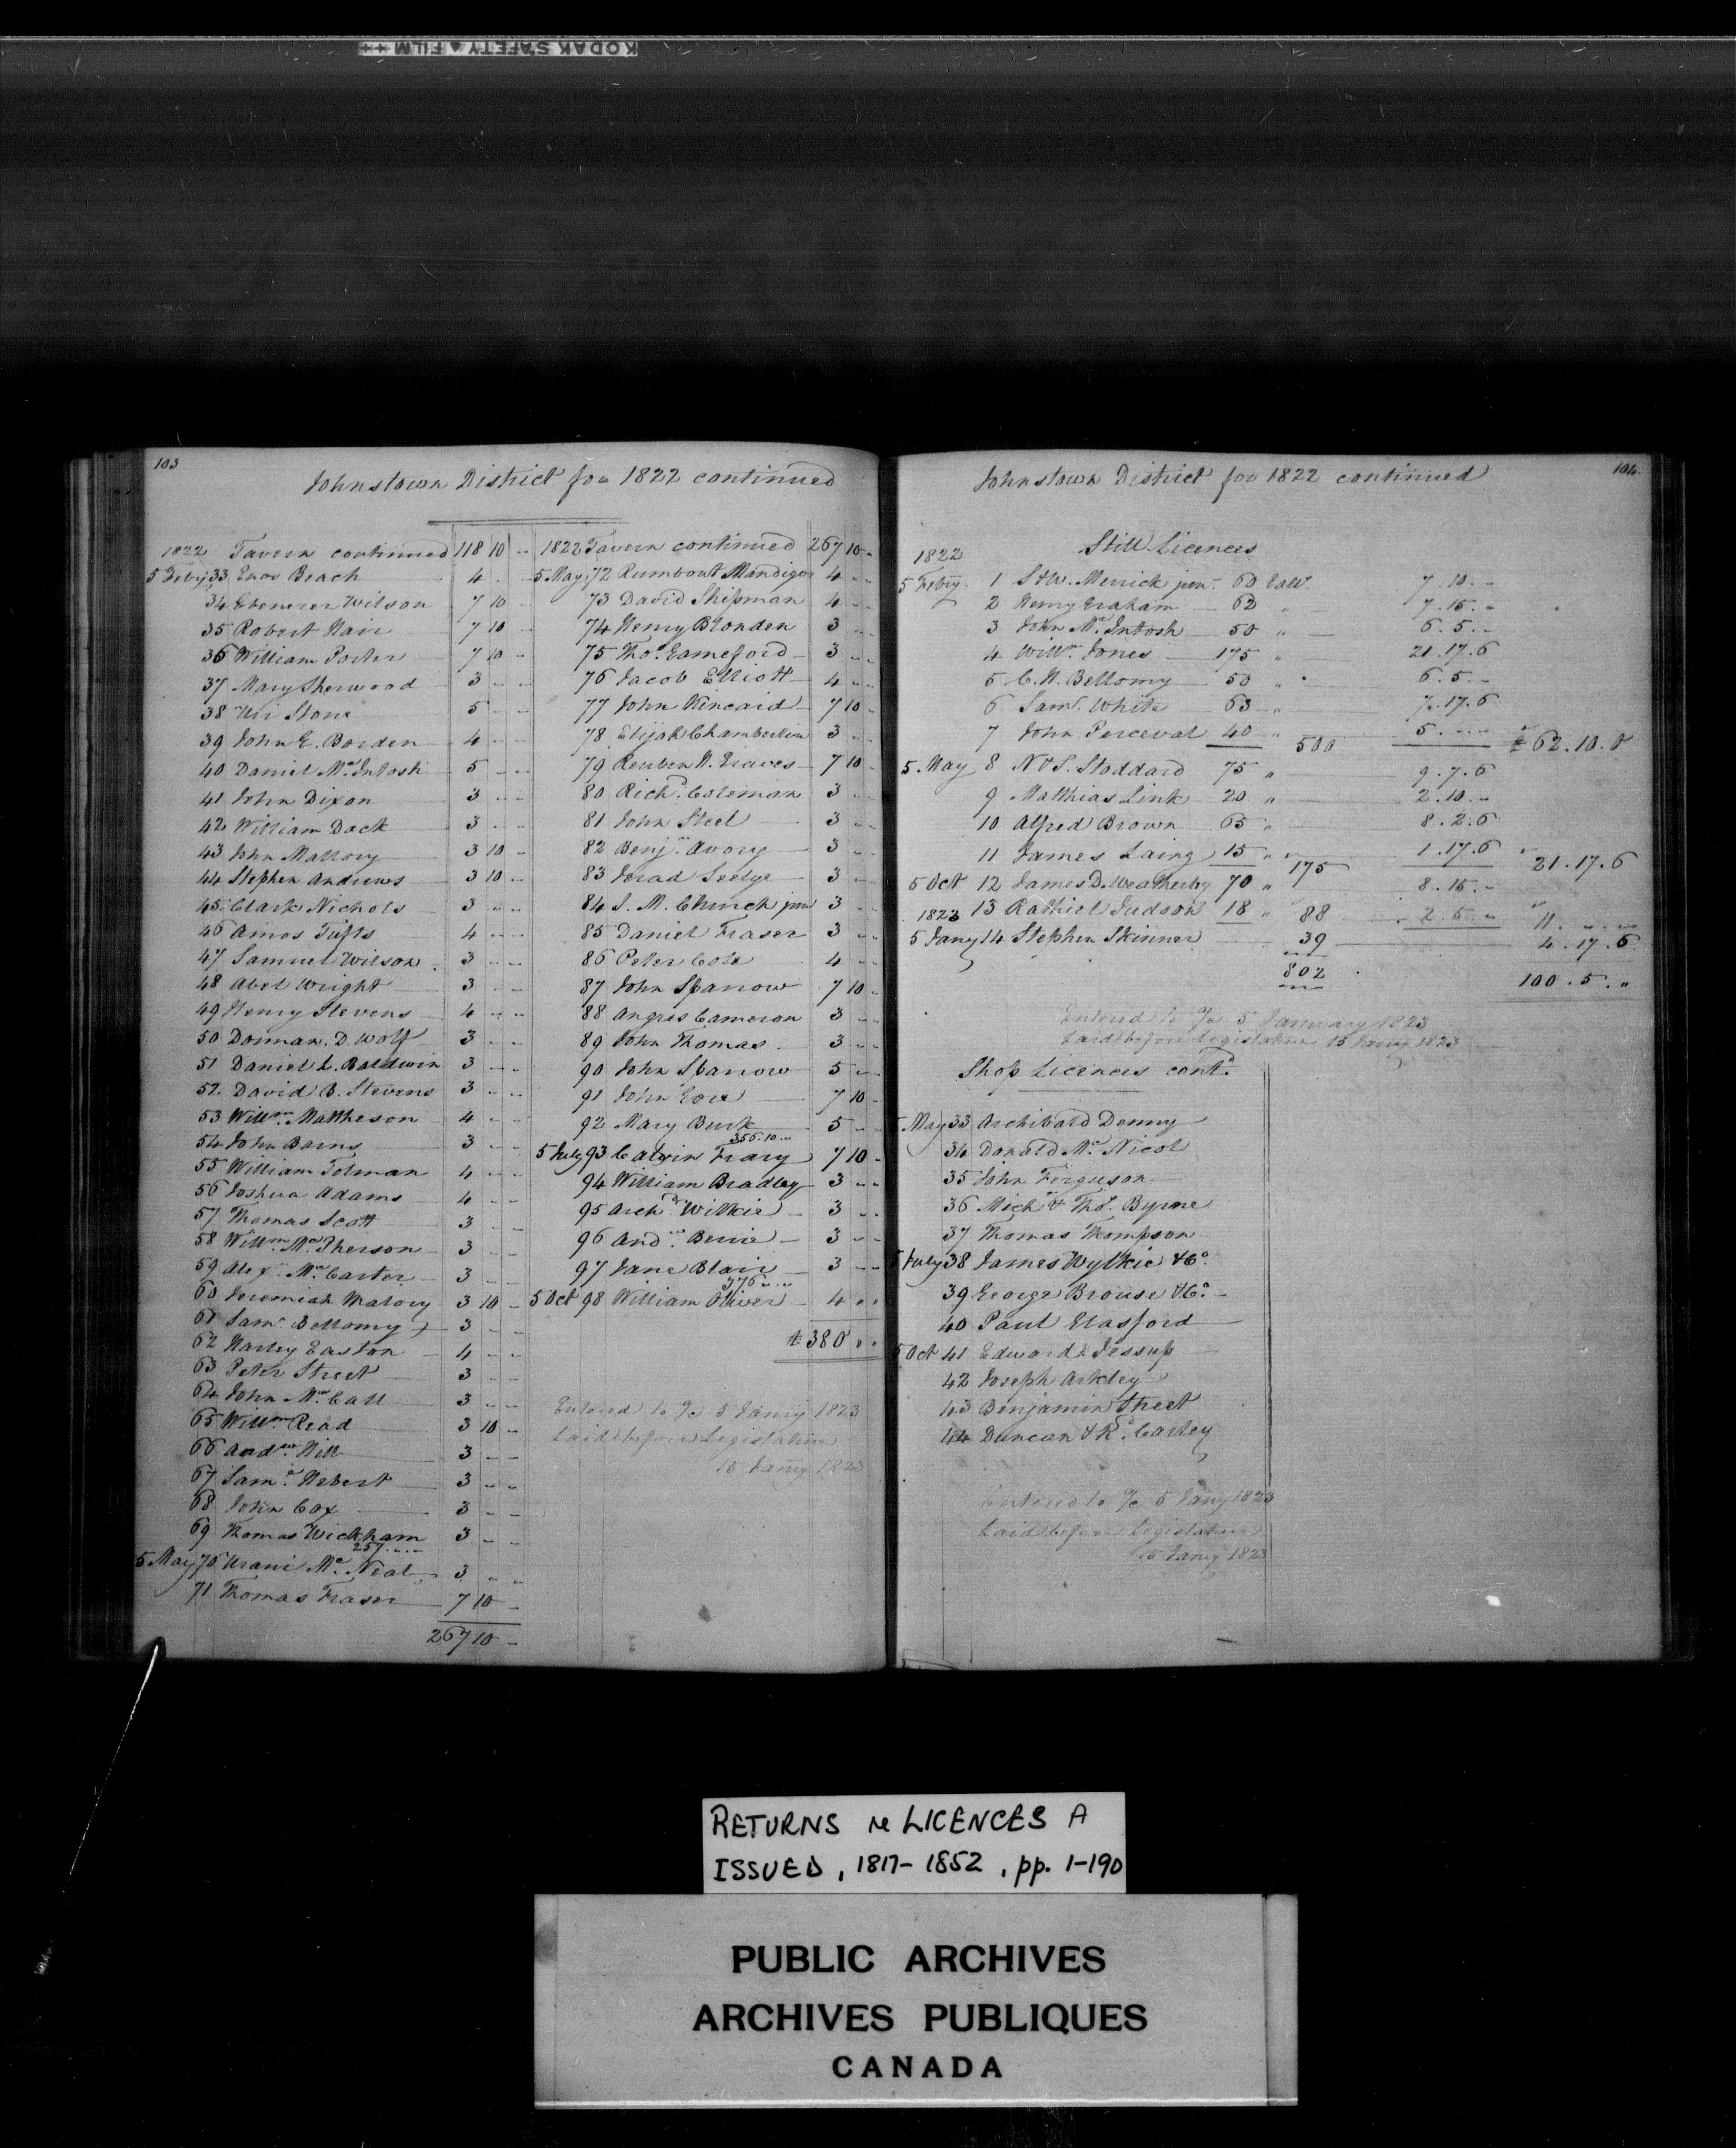 KODAK SAFETY ▲ FILM ++
103
Johnstown District for 1822 continued
1822 Tavern continued 118 10 ..
5 Feby 33 Enos Beach 4 .. ..
34 Ebenezer Wilson 7 10 ..
35 Robert Nair 7 10 ..
36 William Porter 7 10 ..
37 Mary Sherwood 3 .. ..
38 Uri Stone 5 .. ..
39 John E. Borden 4 .. ..
40 Daniel Mc Intosh 5 .. ..
41 John Dixon 3 .. ..
42 William Dack 3 .. ..
43 John Mallory 3 10 ..
44 Stephen Andrews 3 10 ..
45 Clark Nichols 3 .. ..
46 Amos Tufts 4 .. ..
47 Samuel Wilson 3 .. ..
48 Abel Wright 3 .. ..
49 Henry Stevens 4 .. ..
50 Dorman D. Wolf 3 .. ..
51 Daniel L. Baldwin 3 .. ..
52 David B. Stevens 3 .. ..
53 Willm Mattheson 4 .. ..
54 John Barns 3 .. ..
55 William Tolman 4 .. ..
56 Joshua Adams 4 .. ..
57 Thomas Scott 3 .. ..
58 Willm McPherson 3 .. ..
59 Alex. Mc Carter 3 .. ..
60 Jeremiah Malory 3 10 ..
61 Saml Bellomy 3 .. ..
62 Harley Easton 4 .. ..
63 Peter Street 3 .. ..
64 John Mc Call 3 .. ..
65 Willm Read 3 10 ..
66 Andw Hill 3 .. ..
67 Saml Hebert 3 .. ..
68 John Cox 3 .. ..
69 Thomas Wickham 3 .. ..
257 .. ..
5 May 70 Urani Mc Neal 3 .. ..
71 Thomas Fraser 7 10 ..
267 10 ..
1822 Tavern continued 267 10 ..
5 May 72 Rumbout Mandigo 4 .. ..
73 David Shipman 4 .. ..
74 Henry Blonden 3 .. ..
75 Tho. Eameford 3 .. ..
76 Jacob Elliott 4 .. ..
77 John Kincaid 7 10 ..
78 Elijah Chamberlin 3 .. ..
79 Reuben N. Graves 7 10 ..
80 Richd Coleman 3 .. ..
81 John Steel 3 .. ..
82 Benjn Avory 3 .. ..
83 Jerad Seelye 3 .. ..
84 J. M. Church junr 3 .. ..
85 Daniel Fraser 3 .. ..
86 Peter Cole 4 .. ..
87 John Sparrow 7 10 ..
88 Angus Cameron 3 .. ..
89 John Thomas 3 .. ..
90 John Sparrow 5 .. ..
91 John Gore 7 10 ..
92 Mary Burk 5 .. ..
356.10 ..
5 July 93 Calvin Frary 7 10 ..
94 William Bradley 3 .. ..
95 Archd Wilkie 3 .. ..
96 Andw Berrie 3 .. ..
97 Jane Blair 3 .. ..
376 .. ..
5 Oct 98 William Oliver 4 .. ..
£ 380 .. ..
Entered to a/c 5 Jany 1823
Laid before Legislature
15 Jany 1823
104
Johnstown District for 1822 continued
Still Licences
1822
5 Feby. 1 S & W. Merrick junr 60 Gall 7.10 ..
2 Henry Graham 62 " 7.15 ..
3 John Mc Intosh 50 " 6.5 ..
4 Willm Jones 175 " 21.17.6
5 C. H. Bellomy 50 " 6.5 ..
6 Saml White 63 " 7.17.6
7 John Perceval 40 " 500 5 .. .. £ 62.10.0
5 May 8 N & S. Stoddard 75 " 9.7.6
9 Matthias Link 20 " 2.10 ..
10 Alfred Brown 65 " 8.2.6
11 James Laing 15 " 175 1.17.6 21.17.6
5 Oct 12 James D. Weatherby 70 " 8.15 ..
13 Rathiel Judson 18 " 88 2.5 .. 11 .. ..
1823
5 Jany 14 Stephen Skinner 39 4.17.6
802 100.5 ..
Entered to a/c 5 January 1823
Laid before Legislature 15 Jany 1823
Shop Licences contd.
5 May 33 Archibald Denny
34 Donald Mc Nicol
35 John Ferguson
36 Michl & Thos. Byrne
37 Thomas Thompson
5 July 38 James Wylkie & Co
39 George Brouse & Co.
40 Paul Glasford
5 Oct 41 Edward Jessup
42 Joseph Arkley
43 Benjamin Street
44 Duncan & Rd. Carley
Entered to a/c 5 Jany 1823
Laid before Legislature
15 Jany 1823
RETURNS re LICENCES A
ISSUED, 1817-1852, pp. 1-190
PUBLIC ARCHIVES
ARCHIVES PUBLIQUES
CANADA